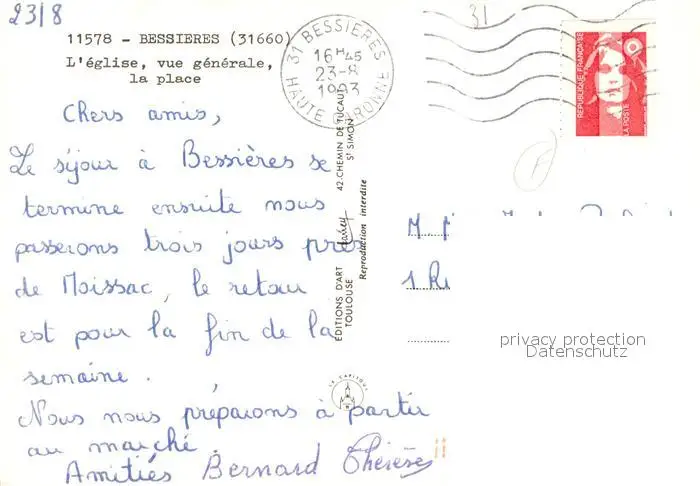 23/8
11578 - BESSIERES (31660)
L'église, vue générale,
la place
31 BESSIERES
16H45
23-8
1993
HAUTE GARONNE
31
REPUBLIQUE FRANÇAISE
LA POSTE
F
Chers amis,
Le séjour à Bessières se
termine ensuite nous
passerons trois jours près
de Moissac, le retour
est pour la fin de la
semaine.
Nous nous préparons à partir
au marché.
Amitiés Bernard Thérèse
ÉDITIONS D'ART
TOULOUSE
42, CHEMIN DE TUCAUT
St SIMON
Reproduction interdite
LA CAPITOUL
M.
1 R
privacy protection
Datenschutz